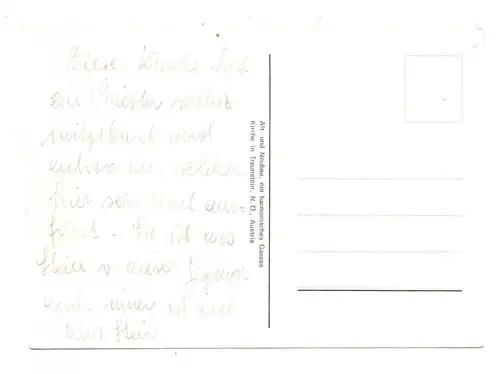 Diese Kirche hat
ein Priester selbst
mitgebaut und
entworfen, welcher
hier sein Amt aus-
führt. Sie ist aus
Stein v. dieser Gegend
innen ist auch
aus Stein
Alt- und Neubau, ein harmonisches Ganzes
Kirche in Traunstein, N. Ö., Austria